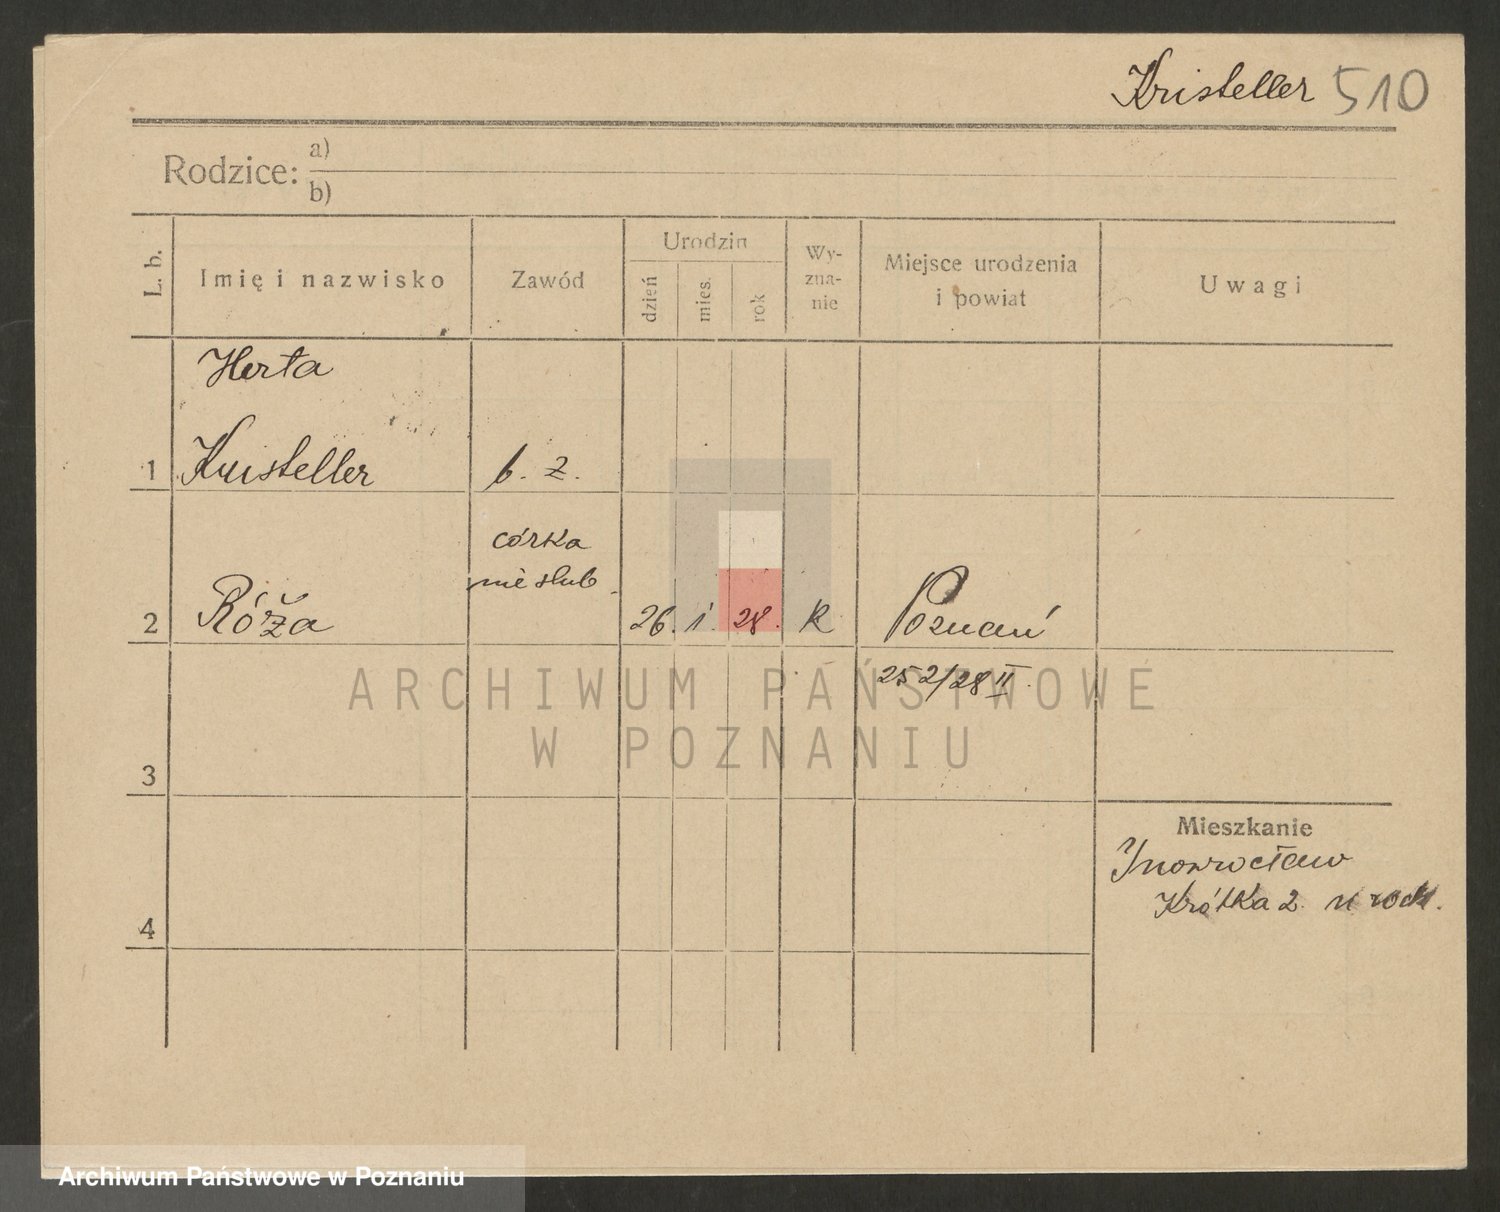 Kristeller 510
Rodzice: a)
b)
L. b.
Imię i nazwisko
Zawód
Urodzin
dzień
mies.
rok
Wy-
zna-
nie
Miejsce urodzenia
i powiat
Uwagi
Herta
1 Kristeller b. z.
córka
nieślub.
2 Róża 26. 1. 28. k Poznań
252/28 II.
3
Mieszkanie
Inowrocław
Krótka 2.
4
ARCHIWUM PAŃSTWOWE
W POZNANIU
Archiwum Państwowe w Poznaniu